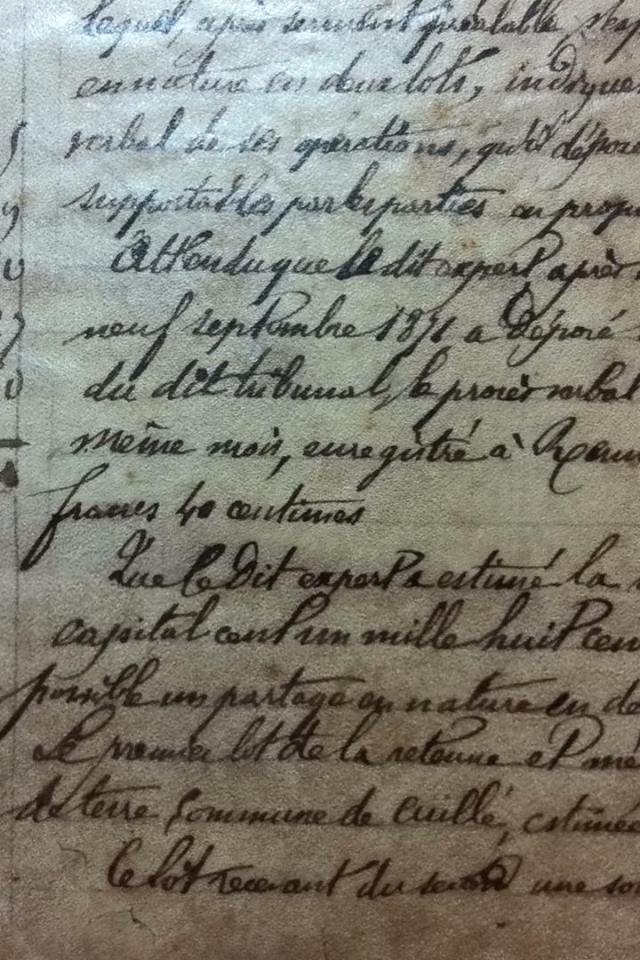 lequel, après serment préalable
en nature en deux lots, indiquer
verbal de ses opérations, qu'il dépose
supportables par les parties au propo
Attendu que le dit expert après
neuf septembre 1871 a déposé
du dit tribunal, le procès verbal
même mois, enregistré à
francs 40 centimes
Que le dit expert a estimé la
capital cent un mille huit cen
possible un partage en nature en de
Le premier lot de la retenue et mé
de terre commune de Cuillé, estimée
Ce lot recevant du second une so